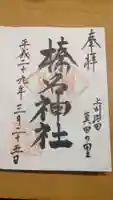 奉拝
上州沼田
真田の里
榛名神社
平成二十九年三月二十五日